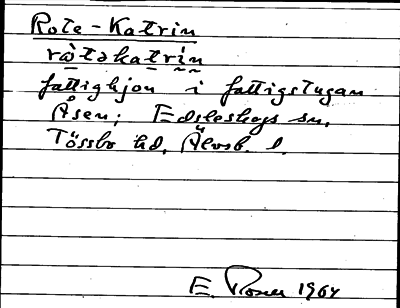 Rote-Katrin
ròtəkatrìn
fattighjon i fattigstugan
Åsen; Edsleskogs sn,
Tössbo hd, Älvsb. l.
E. Rosen 1964